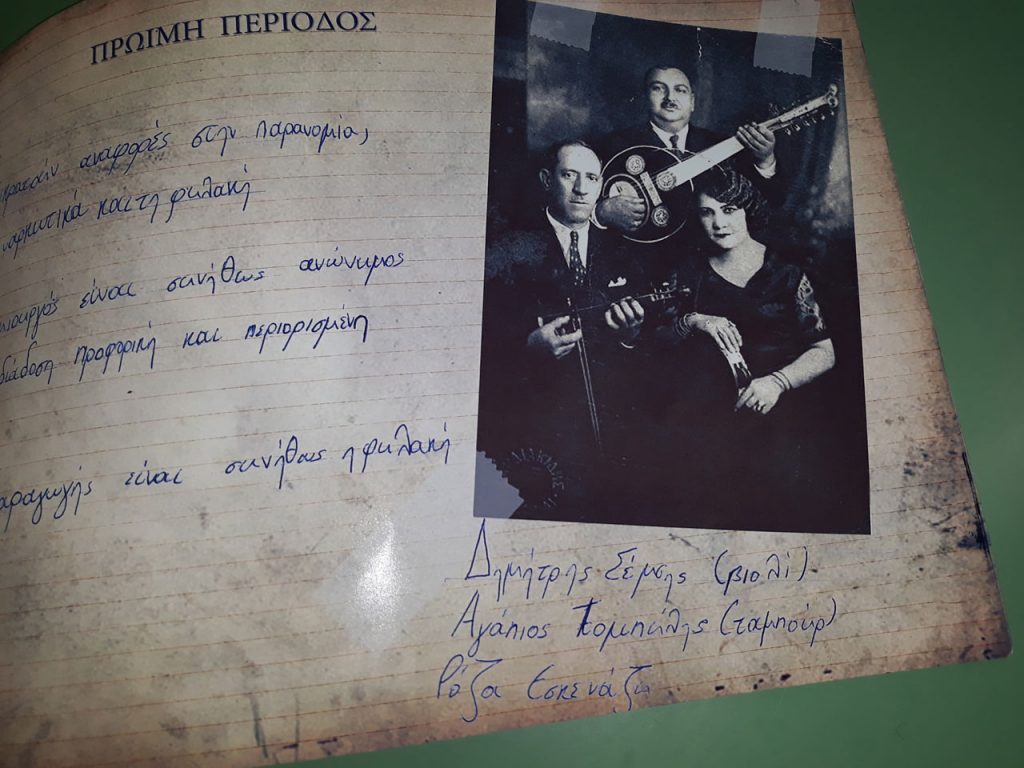 ΠΡΩΙΜΗ ΠΕΡΙΟΔΟΣ
αναφορές στην παρανομία,
ναρκωτικά και τη φυλακή
είναι συνήθως ανώνυμος
διάδοση προφορική και περιορισμένη
παραγωγής είναι συνήθως η φυλακή
Δημήτρης Σέμσης (βιολί)
Αγάπιος Τομπούλης (ταμπούρ)
Ρόζα Εσκενάζυ